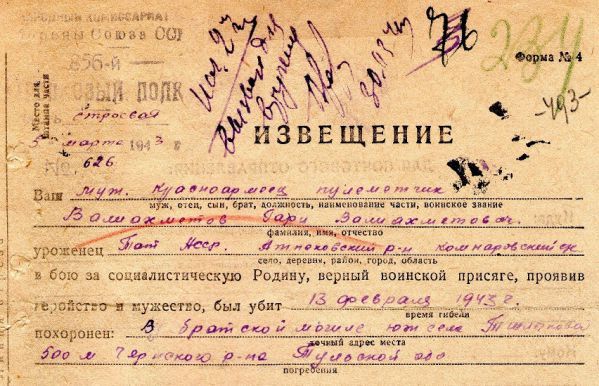 НАРОДНЫЙ КОМИССАРИАТ
Обороны Союза ССР
856-й
СТРЕЛКОВЫЙ ПОЛК
Место для штампа части
строевая
5 марта 1943 г.
626
234
Форма № 4
-493-
ИЗВЕЩЕНИЕ
Ваш муж. Красноармеец пулеметчик
муж, отец, сын, брат, должность, наименование части, воинское звание
Валиахметов Гари Валиахметович.
фамилия, имя, отчество
уроженец Тат АССР. Атнюковский р-н комнаровский
село, деревня, район, город, область
в бою за социалистическую Родину, верный воинской присяге, проявив
геройство и мужество, был убит 13 февраля 1943 г.
время гибели
похоронен: В братской могиле юж села
точный адрес места
500 м Чернского р-на Тульской обл
погребения